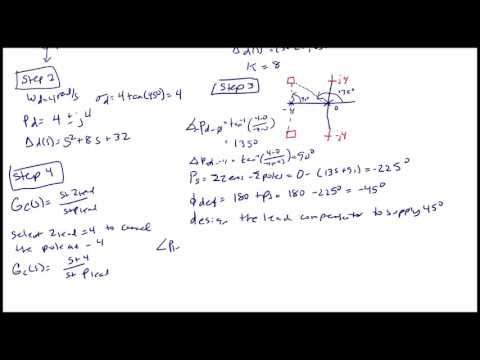 Δd(s) =
K = 8
Step 2
Wd = 4 rad/s σd = 4 tan(45°) = 4
Pd = 4 ± j4
Δd(s) = s² + 8s + 32
Step 3
j4
135°
90°
-4 0
-j4
∠Pd-0 = tan⁻¹(4-0/-4-0) =
135°
∠Pd-4 = tan⁻¹(4-0/-4+4) = 90°
Ps = Σ zeros - Σ poles = 0 - (135 + 90) = -225°
ϕdef = 180 + Ps = 180 - 225° = -45°
design the lead compensator to supply 45°
Step 4
Gc(s) = s+zlead/s+plead
select zlead = 4 to cancel
the pole at -4
Gc(s) = s+4/s+plead
∠P